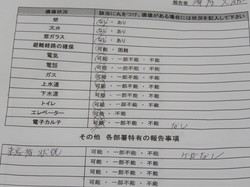 報告者
建築状況 該当に丸をつけ、損壊がある場合には状況を記入して下さい
壁 なし・あり
天井 なし・あり
窓ガラス なし・あり
避難経路の確保 可能・困難
電気 可能・一部不能・不能
電話 可能・一部不能・不能
ガス 可能・一部不能・不能
上水道 可能・一部不能・不能
下水道 可能・一部不能・不能
トイレ 可能・一部不能・不能
エレベーター 可能・一部不能・不能
電子カルテ 可能・一部不能・不能 なし
その他 各部署特有の報告事項
可能・一部不能・不能
可能・一部不能・不能
可能・一部不能・不能